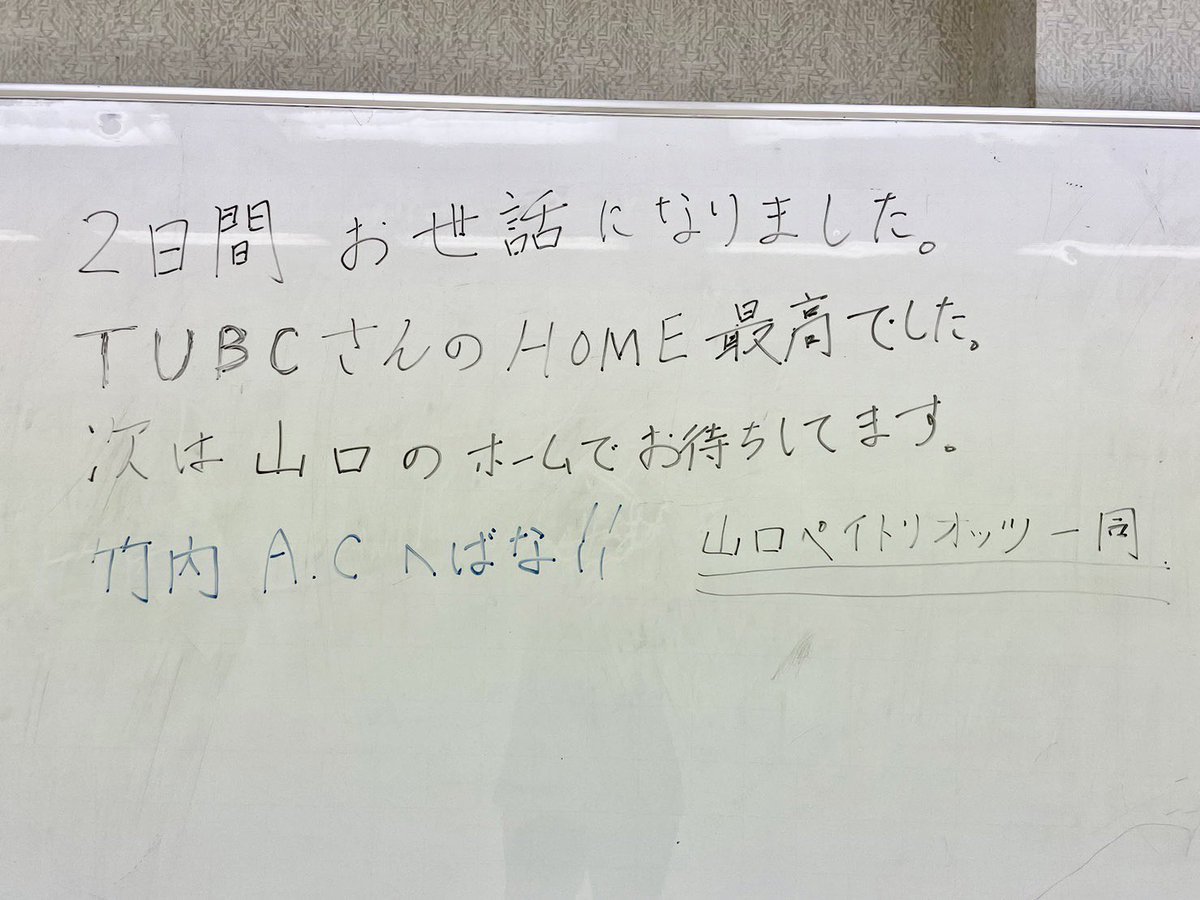 2日間 お世話になりました。
TUBCさんのHOME最高でした。
次は山口のホームでお待ちしてます。
竹内 A.C へばな!!
山口ペイトリオッツ一同.